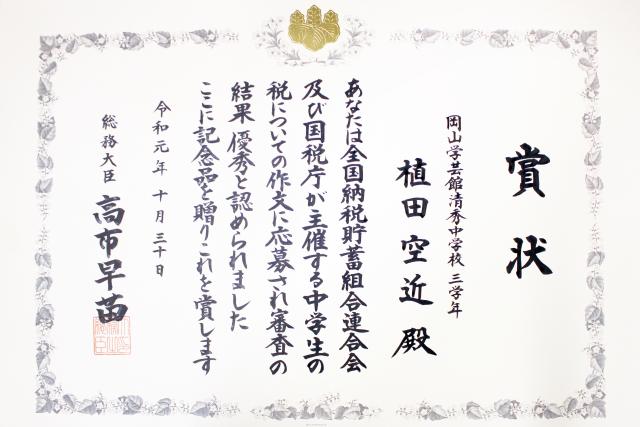 賞状
岡山学芸館清秀中学校 三学年
植田空近殿
あなたは全国納税貯蓄組合連合会
及び国税庁が主催する中学生の
税についての作文に応募され審査の
結果 優秀と認められました
ここに記念品を贈りこれを賞します
令和元年 十月 三十日
総務大臣
高市早苗